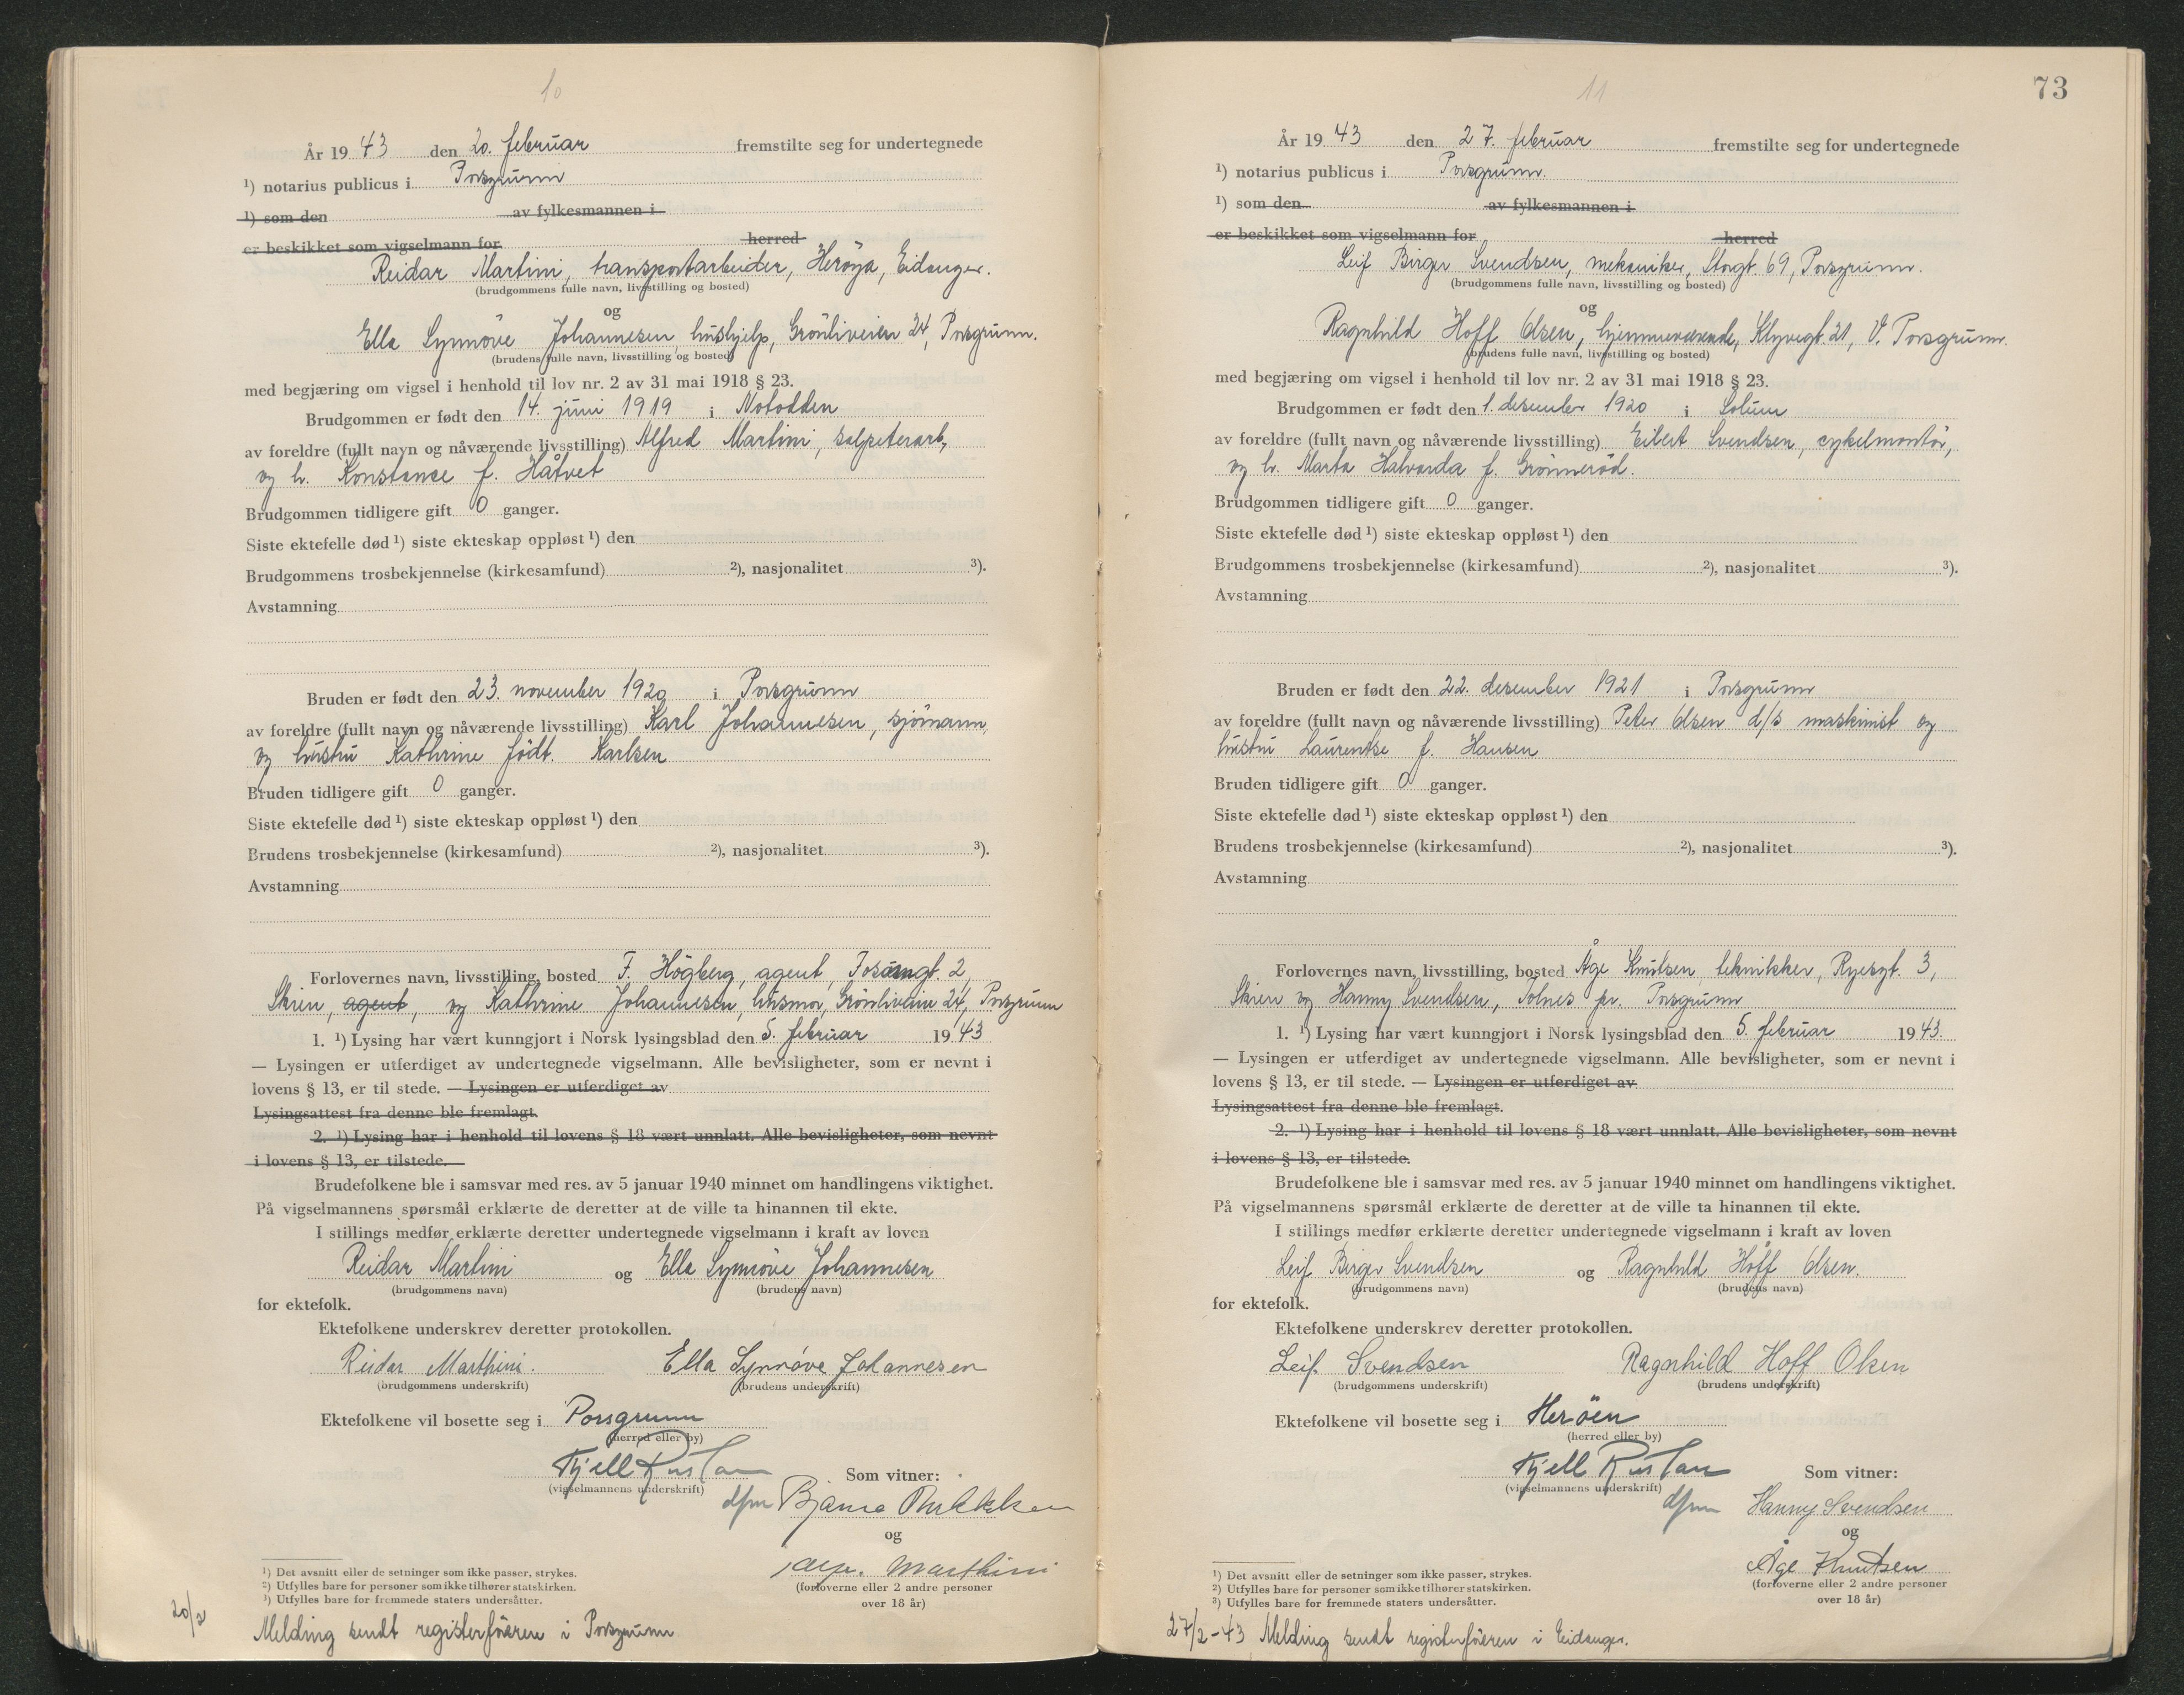 10
År 1943 den 20. februar fremstilte seg for undertegnede
¹) notarius publicus i Porsgrunn
¹) som den av fylkesmannen i
er beskikket som vigselmann for herred
Reidar Martini, transportarbeider, Herøya, Eidanger.
(brudgommens fulle navn, livsstilling og bosted)
og
Ella Synnöve Johannesen, hushjelp, Grönliveien 24, Porsgrunn.
(brudens fulle navn, livsstilling og bosted)
med begjæring om vigsel i henhold til lov nr. 2 av 31 mai 1918 § 23.
Brudgommen er født den 14. juni 1919 i Notodden
av foreldre (fullt navn og nåværende livsstilling) Alfred Martini, salpeterarb,
og h. Konstance f. Håtvet
Brudgommen tidligere gift 0 ganger.
Siste ektefelle død ¹) siste ekteskap oppløst ¹) den
Brudgommens trosbekjennelse (kirkesamfund) ²), nasjonalitet ³).
Avstamning
Bruden er født den 23. november 1920 i Porsgrunn
av foreldre (fullt navn og nåværende livsstilling) Karl Johannesen, sjömann,
og hustru Kathrine födt. Karlsen
Bruden tidligere gift 0 ganger.
Siste ektefelle død ¹) siste ekteskap oppløst ¹) den
Brudens trosbekjennelse (kirkesamfund) ²), nasjonalitet ³).
Avstamning
Forlovernes navn, livsstilling, bosted F. Högberg, agent, 2,
Skien, agent, og Kathrine Johannesen, husmor, Grönliveien 24, Porsgrunn
1. ¹) Lysing har vært kunngjort i Norsk lysingsblad den 5. februar 1943
— Lysingen er utferdiget av undertegnede vigselmann. Alle bevisligheter, som er nevnt i
lovens § 13, er til stede. — Lysingen er utferdiget av
Lysingsattest fra denne ble fremlagt.
2. ¹) Lysing har i henhold til lovens § 18 vært unnlatt. Alle bevisligheter, som nevnt
i lovens § 13, er tilstede.
Brudefolkene ble i samsvar med res. av 5 januar 1940 minnet om handlingens viktighet.
På vigselmannens spørsmål erklærte de deretter at de ville ta hinannen til ekte.
I stillings medfør erklærte deretter undertegnede vigselmann i kraft av loven
Reidar Martini og Ella Synnöve Johannesen
(brudgommens navn) (brudens navn)
for ektefolk.
Ektefolkene underskrev deretter protokollen.
Reidar Marthini. Ella Synnöve Johannesen
(brudgommens underskrift) (brudens underskrift)
Ektefolkene vil bosette seg i Porsgrunn
(herred eller by)
Kjell Rustan Som vitner:
(vigselmannens underskrift)
dfm Bjarne
og
Marthini
(forloverne eller 2 andre personer
over 18 år)
¹) Det avsnitt eller de setninger som ikke passer, strykes.
²) Utfylles bare for personer som ikke tilhører statskirken.
³) Utfylles bare for fremmede staters undersåtter.
20/2
Melding sendt registerföreren i Porsgrunn
11
73
År 1943 den 27. februar fremstilte seg for undertegnede
¹) notarius publicus i Porsgrunn.
¹) som den av fylkesmannen i
er beskikket som vigselmann for herred
Leif Birger Svendsen, mekaniker, Storgt. 69, Porsgrunn.
(brudgommens fulle navn, livsstilling og bosted)
og
Ragnhild Hoff Olsen, hjemmeværende, Klyvegt. 21, V. Porsgrunn.
(brudens fulle navn, livsstilling og bosted)
med begjæring om vigsel i henhold til lov nr. 2 av 31 mai 1918 § 23.
Brudgommen er født den 1. desember 1920 i Solum
av foreldre (fullt navn og nåværende livsstilling) Eibert Svendsen, cykelmontör,
og h. Marta Halvarda f. Grönneröd.
Brudgommen tidligere gift 0 ganger.
Siste ektefelle død ¹) siste ekteskap oppløst ¹) den
Brudgommens trosbekjennelse (kirkesamfund) ²), nasjonalitet ³).
Avstamning
Bruden er født den 22. desember 1921 i Porsgrunn
av foreldre (fullt navn og nåværende livsstilling) Peter Olsen d/s maskinist og
hustru Laurentse f. Hansen
Bruden tidligere gift 0 ganger.
Siste ektefelle død ¹) siste ekteskap oppløst ¹) den
Brudens trosbekjennelse (kirkesamfund) ²), nasjonalitet ³).
Avstamning
Forlovernes navn, livsstilling, bosted Åge Knutsen, teknikker, Ryesgt. 3,
Skien og Hanny Svendsen, Tolnes pr. Porsgrunn
1. ¹) Lysing har vært kunngjort i Norsk lysingsblad den 5. februar 1943.
— Lysingen er utferdiget av undertegnede vigselmann. Alle bevisligheter, som er nevnt i
lovens § 13, er til stede. — Lysingen er utferdiget av
Lysingsattest fra denne ble fremlagt.
2. ¹) Lysing har i henhold til lovens § 18 vært unnlatt. Alle bevisligheter, som nevnt
i lovens § 13, er tilstede.
Brudefolkene ble i samsvar med res. av 5 januar 1940 minnet om handlingens viktighet.
På vigselmannens spørsmål erklærte de deretter at de ville ta hinannen til ekte.
I stillings medfør erklærte deretter undertegnede vigselmann i kraft av loven
Leif Birger Svendsen og Ragnhild Hoff Olsen.
(brudgommens navn) (brudens navn)
for ektefolk.
Ektefolkene underskrev deretter protokollen.
Leif Svendsen Ragnhild Hoff Olsen
(brudgommens underskrift) (brudens underskrift)
Ektefolkene vil bosette seg i Heröen
(herred eller by)
Kjell Rustan Som vitner:
(vigselmannens underskrift)
dfm Hanny Svendsen
og
Åge Knutsen
(forloverne eller 2 andre personer
over 18 år)
¹) Det avsnitt eller de setninger som ikke passer, strykes.
²) Utfylles bare for personer som ikke tilhører statskirken.
³) Utfylles bare for fremmede staters undersåtter.
27/2-43 Melding sendt registerföreren i Eidanger.